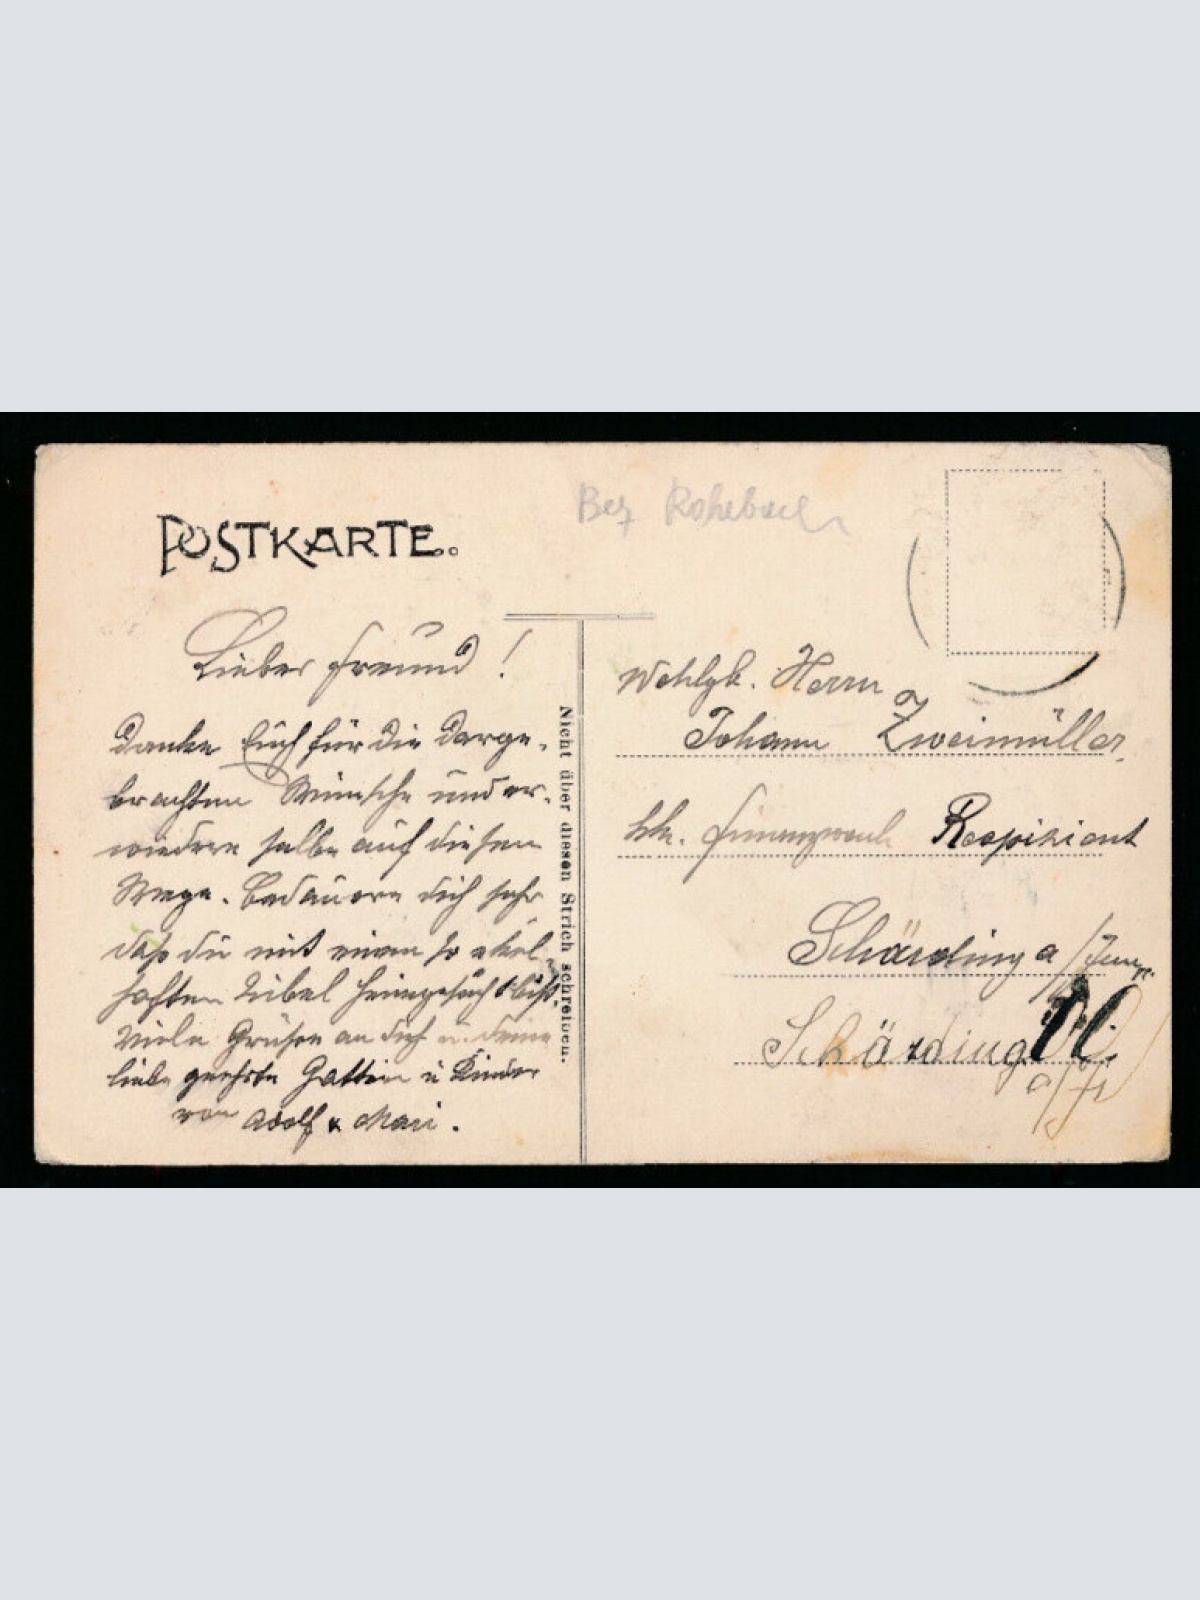 Bez Rohrbach
POSTKARTE.
Lieber Freund!
danke Euch für die darge-
brachten Wünsche und er-
wiedere selbe auf diesem
Wege. Bedauere dich sehr
daß du mit einem so ekel-
haften Uibel heimgesucht bist.
Viele Grüße an dich u. deine
liebe geehrte Gattin u Kinder
von Adolf & Mari.
Nicht über diesen Strich schreiben.
Wohlgb. Herrn
Johann Zweimüller
kk. Finanzwach Respizient
Schärding a/Inn
Schärding
a/I